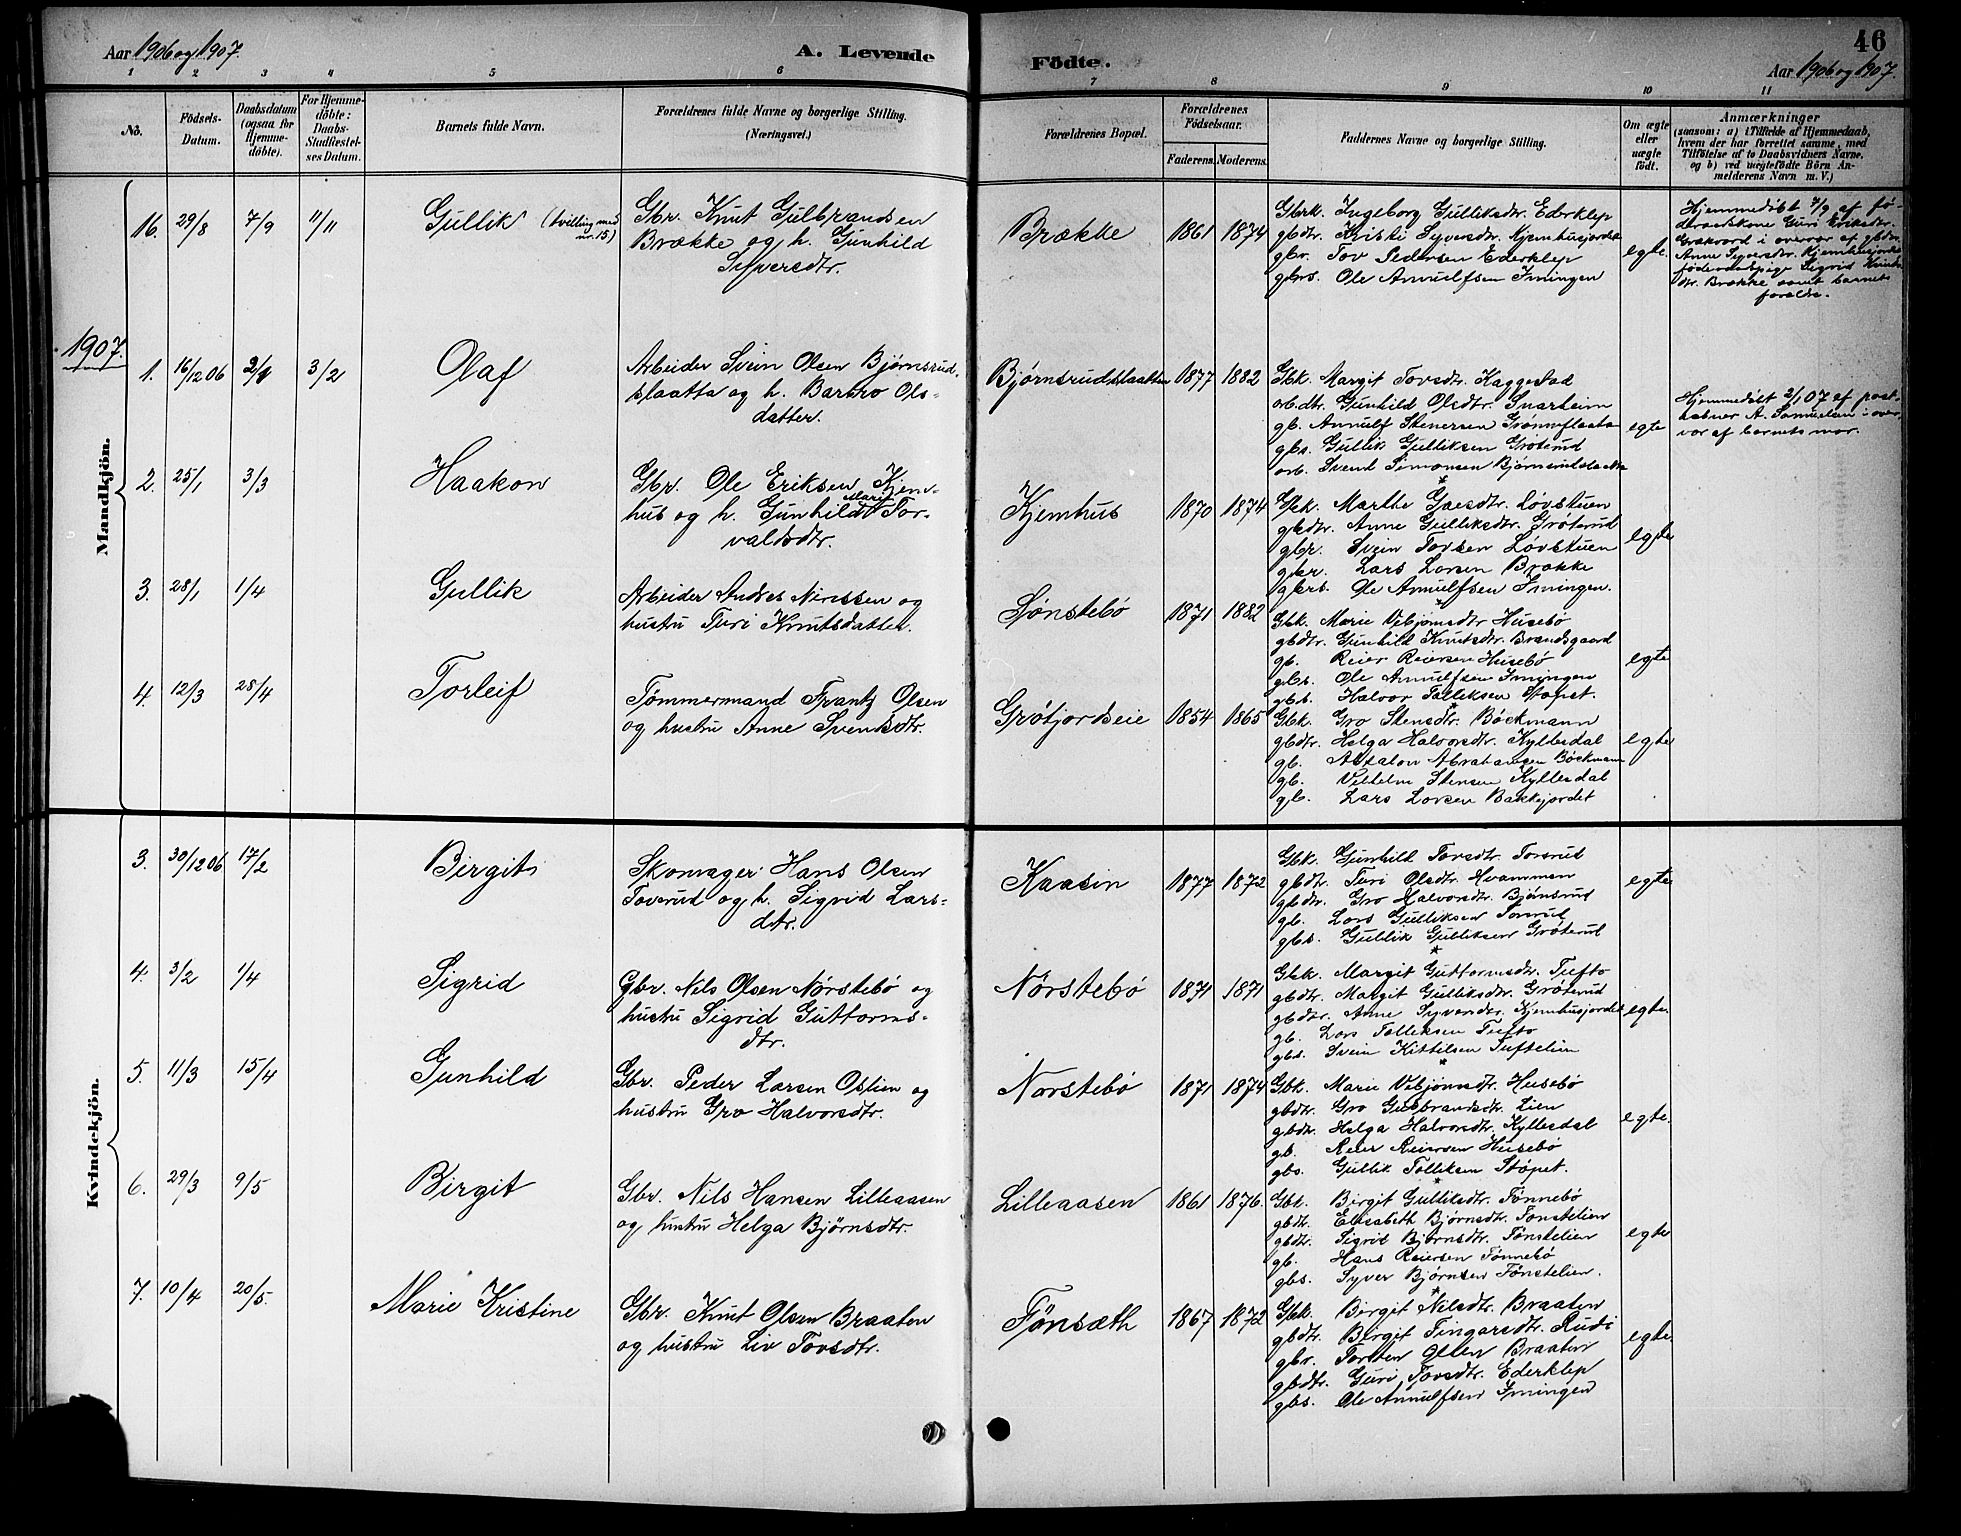 46
Aar 1906 og 1907. A. Levende Födte. Aar 1906 og 1907.
1 2 3 4 5 6 7 8 9 10 11
No.
Födsels-
Datum.
Daabsdatum
(ogsaa for
Hjemme-
döbte).
For Hjemme-
döbte:
Daabs-
Stadfæstel-
ses Datum.
Barnets fulde Navn.
Forældrenes fulde Navne og borgerlige Stilling.
(Næringsvei.)
Forældrenes Bopæl.
Forældrenes
Födselsaar.
Faderens. Moderens.
Faddernes Navne og borgerlige Stilling.
Om ægte
eller
uægte
födt.
Anmærkninger
(saasom: a) i Tilfælde af Hjemmedaab,
hvem der har forrettet samme, med
Tilföielse af to Daabsvidners Navne,
og b) ved uægtefödte Börn An-
melderens Navn m. V.)
Mandkjön.
16. 29/8 7/9 11/11 Gullik (tvilling med
nr. 15)
Gbr. Knut Gulbrandsen
Brække og h. Gunhild
Syversdtr.
Brække 1861 1874
Gbrk. Ingeborg Gulliksdtr. Ederklep
gbdtr. Kristi Syversdtr. Kjemhusjordet
gbr. Tov Pedersen Ederklep
gbrs. Ole Arnulfsen Imingen
egte.
Hjemmedöbt 7/9 af fö-
deraadskone Guri Eriksdtr.
i overvær af gbdtr.
Anne Syversdtr. Kjemhusjordet
Sigrid Knuts-
dtr. Brække samt barnets
forældre.
1907.
1. 16/12 06 2/1 3/2 Olaf
Arbeider Svein Olsen Bjørnsrud-
slaatta og h. Barbro Ols-
datter.
Bjørnsrudslaatten 1877 1882
Gbk. Margit Tovsdtr. Kaggestad
arb.dtr. Gunhild Olsdtr. Snarheim
gb. Arnulf Stenersen Grønneflaata
gbs. Gullik Gulliksen Gröterud
arb. Svend Simonsen Bjørnsrudslaatta
egte
Hjemmedöbt 2/1 07 af post-
aabner A. Samuelsen i over-
vær af barnets mor.
2. 25/1 3/3 Haakon
Gbr. Ole Eriksen Kjem-
hus og h. Gunhild Marie Tor-
valdsdtr.
Kjemhus 1870 1874
Gbk. Marthe Goesdtr. Løvstuen
gbdtr. Anne Gulliksdtr. Gröterud
gbr. Svein Tovsen Løvstuen
gbr. Lars Larsen Brække
gbrs. Ole Arnulfsen Imingen.
egte
3. 28/1 1/4 Gullik
Arbeider Andres Nirissen og
hustru Turi Knutsdatter.
Sønstebö 1871 1882
Gbk. Marie Vebjørnsdtr Husebö
gbdtr. Gunhild Knutsdtr. Brandsgaard
gb. Reier Reiersen Husebö
gbs. Ole Arnulfsen Imingen
gbs. Halvor Tolleksen Støpet.
egte
4. 12/3 28/4 Torleif
Tømmermand Frantz Olsen
og hustru Anne Svendsdtr.
Gröfjordseie 1854 1865
Gbk. Gro Stensdtr. Böckmann
gbdtr. Helga Halvorsdtr. Kyllesdal
gb. Absalon Abrahamsen Böckmann
gb. Vilhelm Stensen Kyllesdal
gb. Lars Larsen Bakkejordet
egte
Kvindekjön.
3. 30/12 06 17/2 Birgit
Skomager Hans Olsen
Toverud og h. Sigrid Lars-
dtr.
Kaasin 1877 1872
Gbk. Gunhild Tovsdtr. Tovrud
gbdtr. Turi Olsdtr. Hvammen
gbdtr. Gro Halvorsdtr. Bjönsrud
gb. Lars Gulliksen Tovrud
gbs. Gullik Gulliksen Gröterud
egte
4. 3/2 1/4 Sigrid
Gbr. Nels Olsen Nørstebö og
hustru Sigrid Guttorms-
dtr.
Nørstebö 1871 1871
Gbk. Margit Guttormsdtr. Tufto
gbdtr. Margit Gulliksdtr. Gröterud
gbdtr. Anne Syversdtr. Kjemhusjordet
gb. Lars Tolleksen Tufto
gbs. Svein Kittilsen Tuftelien
egte.
5. 11/3 15/4 Gunhild
Gbr. Peder Larsen Oslien og
hustru Gro Halvorsdtr.
Nørstebö 1871 1874
Gbk. Marie Vebjørnsdtr. Husebö
gbdtr. Gro Gulbrandsdtr. Lien
gbdtr. Helga Halvorsdtr. Kyllesdal
gb. Reier Reiersen Husebö
gbs. Gullik Tolleksen Støpet.
egte.
6. 29/3 9/5 Birgit
Gbr. Nils Hansen Lilleaasen
og hustru Helga Bjørnsdtr.
Lilleaasen 1861 1876.
Gbk. Birgit Gulliksdtr. Tönnebö
gbdtr. Elisabeth Bjørnsdtr. Tønstelien
gbdtr. Sigrid Bjørnsdtr. Tönstelien
gb. Hans Reiersen Tönnebö
gbs. Syver Bjørnsen Tönstelien.
egte
7. 10/4 20/5. Marie Kristine
Gbr. Knut Olsen Braaten
og hustru Liv Tovsdtr.
Tönsæth 1867 1872
Gbk. Birgit Nilsdtr. Braaten
gbdtr. Birgit Fingarsdtr. Rudi
gbr. Torsten Olsen Braaten
gbdtr. Guri Tovsdtr. Ederklep
gbs. Ole Arnulfsen Imingen
egte